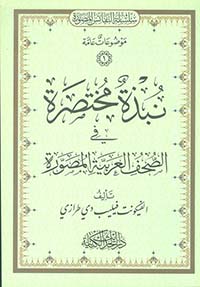 سلسلة النفائس المصورة
موضوعات عامة
١
نبذة مختصرة
في
الصحف العربية المصورة
تأليف
الفيكونت فيليب دي طرازي